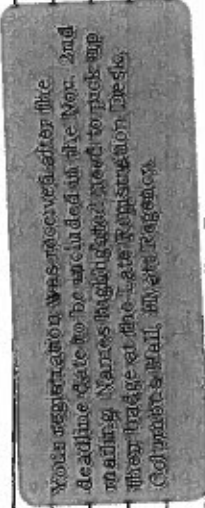 Your registration was received after the
deadline date to be included in the Nov. 2nd
mailing. Names highlighted need to pick up
their badge at the Late Registration Desk,
Columbus Hall, Hyatt Regency.